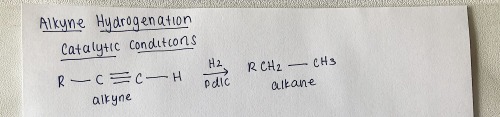 Alkyne Hydrogenation
Catalytic Conditions
R — C ≡ C — H H2 → Pd/C RCH2 — CH3
alkyne alkane